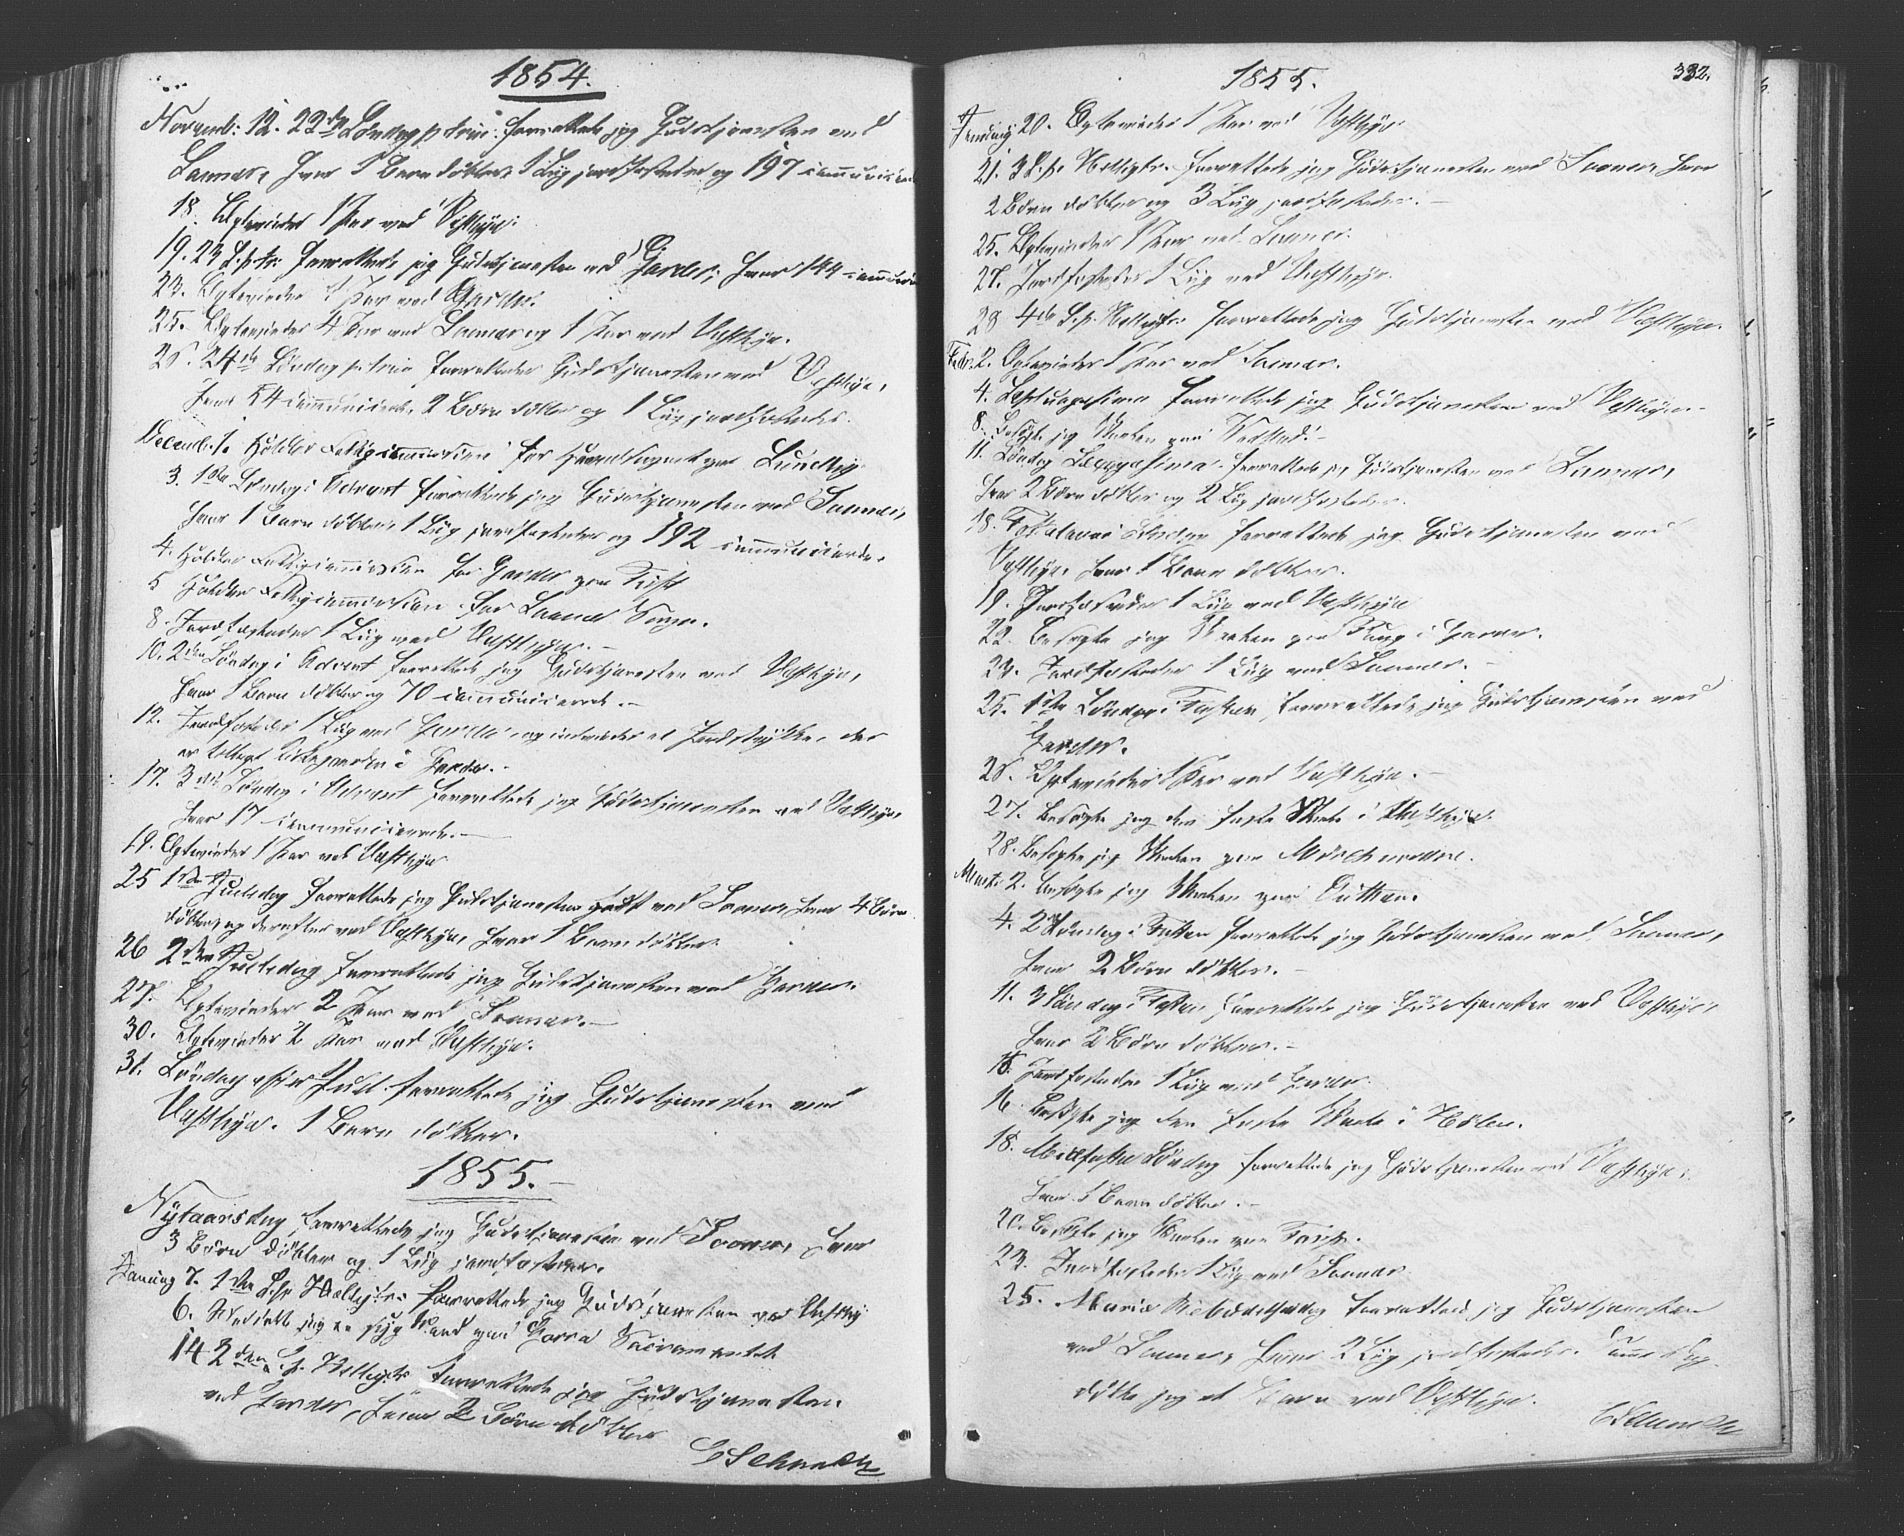 1854.
Novemb: 12. 22de Søndag p. trin: forrettede jeg Gudstjenesten ved
Saaner, hvor 1 Barn døbtes, 1 Lig jordfæstedes og 197 communicerede
18. Egteviedes 1 Par ved Vestby.
19. 23 S. p. tr. forrettede jeg Gudstjenesten ved Garder, hvor 144 communicerede
23. Egteviedes 1 Par ved Garder.
25. Egteviedes 4 Par ved Saaner og 1 Par ved Vestby.
26. 24de Søndag p. trin forrettedes Gudstjenesten ved Vestby,
hvor 54 communicerede, 2 Børn døbtes og 1 Lig jordfæstedes.
Decemb. 1. Holdtes Fattigcommission for
3. 1ste Søndag i Advent forrettede jeg Gudstjenesten ved Saaner,
hvor 1 Barn døbtes, 1 Lig jordfæstedes og 192 communicerede.
4. Holdtes Fattigcommission for Garder paa
5 Holdtes Fattigcommission for Saaner Sogn.
8. Jordfæstedes 1 Lig ved Vestby.
10. 2den Søndag i Advent forrettede jeg Gudstjenesten ved Vestby,
hvor 1 Barn døbtes og 70 communicerede.
12. Jordfæstedes 1 Lig ved Garder, og indviedes et Jordstykke, der
er tillagt Kirkegaarden i Garder.
17. 3die Søndag i Advent forrettede jeg Gudstjenesten ved Vestby,
hvor 17 communicerede.
19. Egteviedes 1 Par ved Vestby
25 1ste Juledag forrettede jeg Gudstjenesten først ved Saaner, hvor 4 Børn
døbtes, og derefter ved Vestby, hvor 1 Barn døbtes.
26 2den Juledag forrettede jeg Gudstjenesten ved Garder.
27. Egteviedes 2 Par ved Saaner.
30. Egteviedes 2 Par ved Vestby.
31. Søndag efter Juul forrettede jeg Gudstjenesten ved
Vestby. 1 Barn døbtes.
1855.
Nytaarsdag forrettede jeg Gudstjenesten ved Saaner, hvor
3 Børn døbtes og 1 Lig jordfæstedes.
Januar 7. 1ste S. p. Helligtr. forrettede jeg Gudstjenesten ved Vestby
6. Meddelte jeg en syg Mand paa Sacramentet
14 2den S. p. Helligtr. forrettede jeg Gudstjenesten
ved Garder, hvor 2 Børn døbtes
Schmidt
1855. 332.
Januar 20. Egteviedes 1 Par ved Vestby.
21. 3 S. p. Helligtr. forrettede jeg Gudstjenesten ved Saaner, hvor
2 Børn døbtes og 3 Lig jordfæstedes.
25. Egteviedes 1 Par ved Saaner.
27. Jordfæstedes 1 Lig ved Vestby.
28 4de S. p. Helligtr. forrettede jeg Gudstjenesten ved Vestby.
Febr: 2. Egteviedes 1 Par ved Saaner.
4. Septuagesima forrettede jeg Gudstjenesten ved Vestby.
8. Besøgte jeg Skolen paa
11. Søndag Sexagesima forrettede jeg Gudstjenesten ved Saaner,
hvor 2 Børn døbtes og 2 Lig jordfæstedes.
18. Fastelavns Søndag forrettede jeg Gudstjenesten ved
Vestby, hvor 1 Barn døbtes.
19. Jordfæstedes 1 Lig ved Vestby
22. Besøgte jeg Skolen paa i
23. Jordfæstedes 1 Lig ved Saaner.
25. 1ste Søndag i Fasten forrettede jeg Gudstjenesten ved
Garder.
26. Egteviedes 1 Par ved Vestby.
27. Besøgte jeg den faste Skole i Vestby.
28. Besøgte jeg Skolen paa
Marts 2. Besøgte jeg Skolen paa
4. 2 Søndag i Fasten forrettede jeg Gudstjenesten ved Saaner,
hvor 2 Børn døbtes.
11. 3 Søndag i Fasten forrettede jeg Gudstjenesten ved Vestby,
hvor 2 Børn døbtes.
15. Jordfæstedes 1 Lig ved Garder.
16 Besøgte jeg den faste Skole i Hølen.
18. Midfaste Søndag forrettede jeg Gudstjenesten ved Vestby,
hvor 1 Barn døbtes.
20. Besøgte jeg Skolen paa
23. Jordfæstedes 1 Lig ved Saaner.
25. Mariæ Bebudelsesdag forrettede jeg Gudstjenesten
ved Saaner, hvor 2 Lig jordfæstedes. Samme Dag
døbte jeg et Barn ved Vestby.
Schmidt